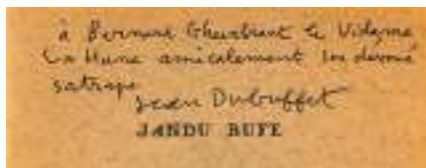 à Bernard Gheerbrant le Vidame
La Hune amicalement son dévoué
satrape
Jean Dubuffet
JANDU BUFE